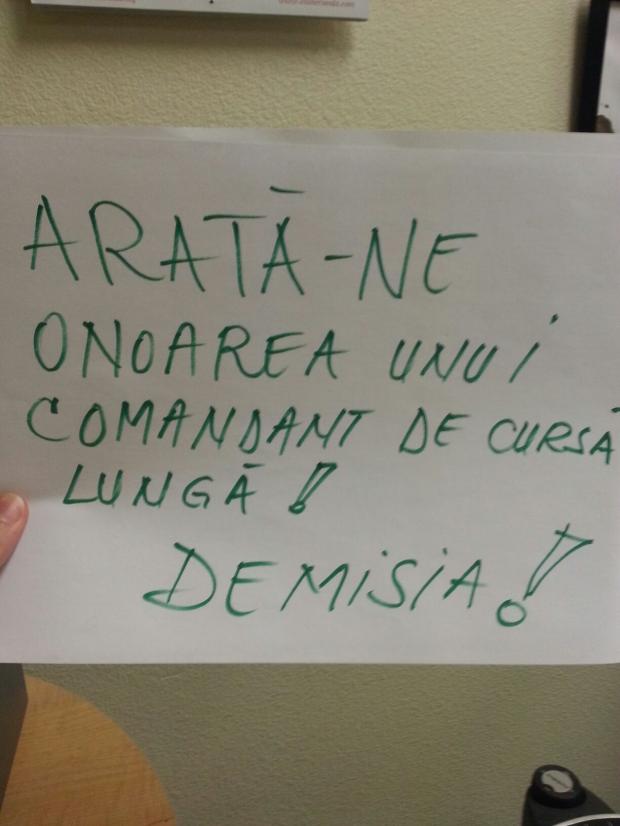 ARATĂ-NE
ONOAREA UNUI
COMANDANT DE CURSĂ
LUNGĂ!
DEMISIA!